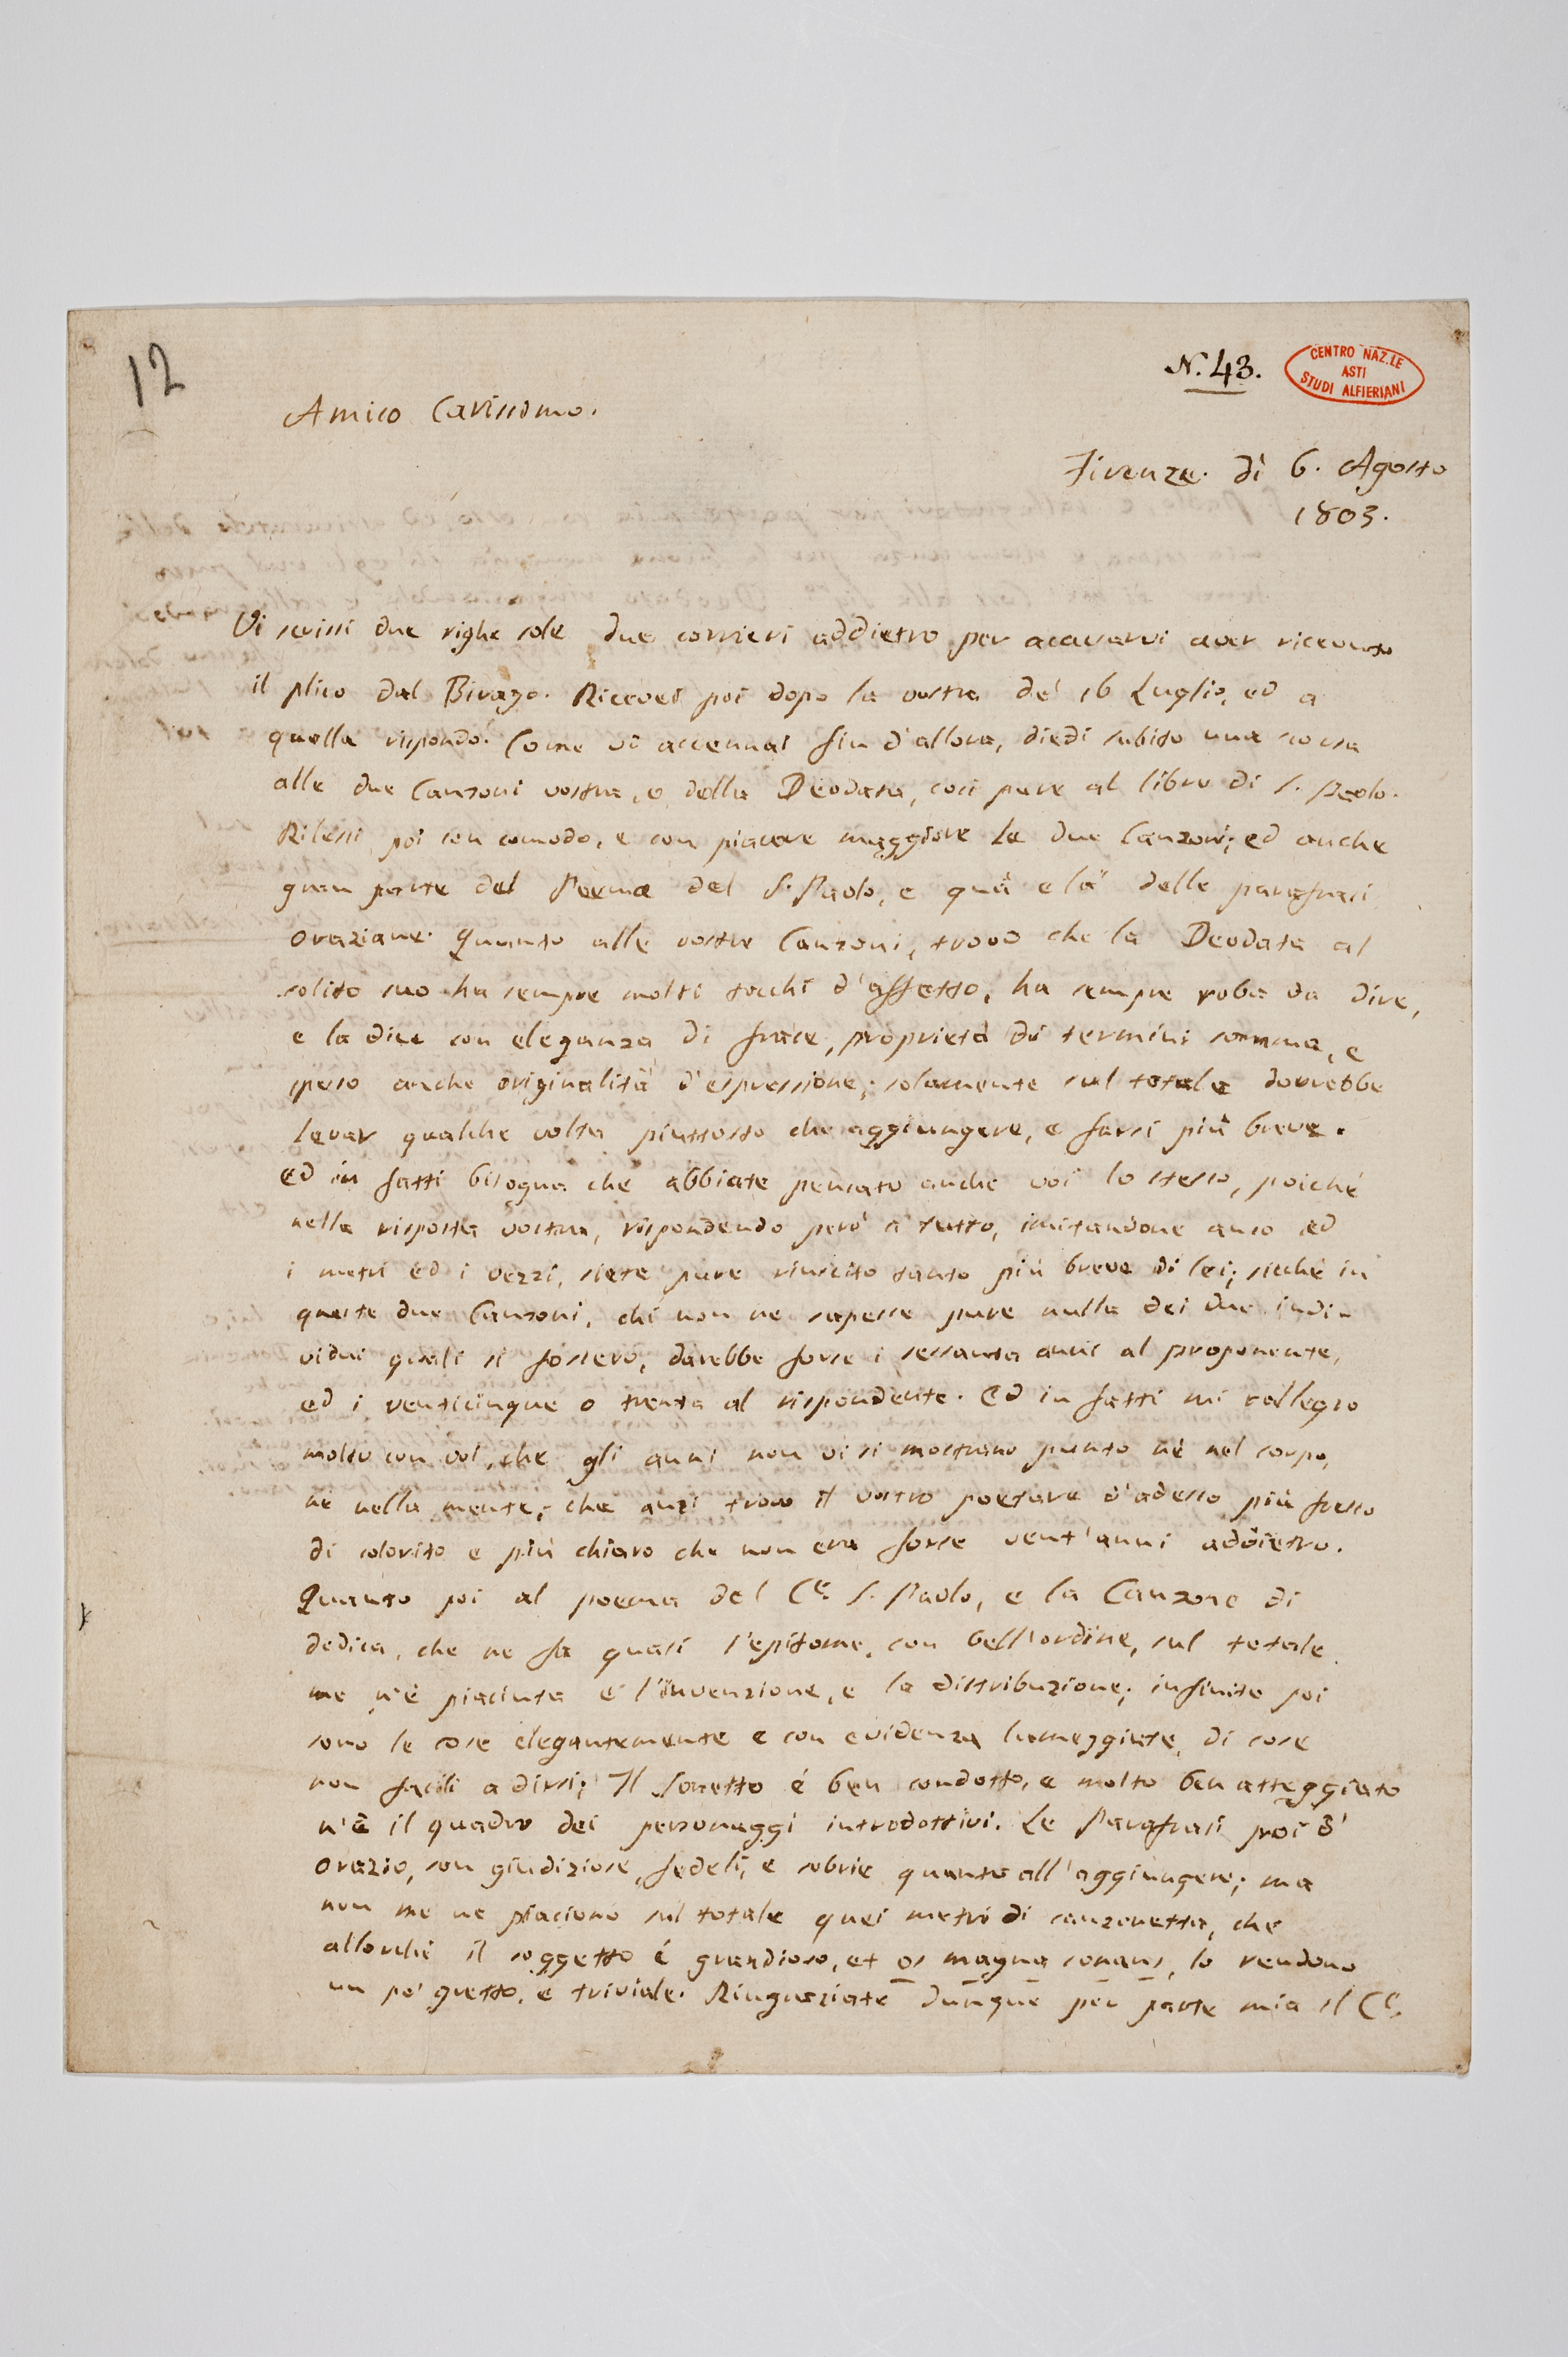 12
N. 43.
CENTRO NAZ.LE
ASTI
STUDI ALFIERIANI
Amico Carissimo.
Firenze. dì 6. Agosto
1803.
Vi scrissi due righe sole due corrieri addietro per accusarvi aver ricevuto
il plico dal Birago. Ricevei poi dopo la vostra de' 16 Luglio, ed a
quella rispondo. Come vi accennai fin d'allora, diedi subito una scorsa
alle due Canzoni vostra, e della Deodata, così pure al libro di S. Paolo.
Rilessi poi con comodo, e con piacere maggiore le due Canzoni; ed anche
gran parte del Poema del S. Paolo, e quà e là delle parafrasi
oraziane. Quanto alle vostre Canzoni, trovo che la Deodata al
solito suo ha sempre molti tocchi d'affetto, ha sempre roba da dire,
e la dice con eleganza di frase, proprietà di termini somma, e
speso anche originalità d'espressione; solamente sul totale dovrebbe
levar qualche volta piuttosto che aggiungere, e farsi più breve.
ed in fatti bisogna che abbiate pensato anche voi lo stesso, poichè
nella risposta vostra, rispondendo però a tutto, imitandone anco ed
i metri ed i vezzi, siete pure riuscito tanto più breve di lei; sicchè in
queste due Canzoni, chi non ne sapesse pure nulla dei due indi-
vidui quali si fossero, darebbe forse i sessanta anni al proponente,
ed i venticinque o trenta al rispondente. Ed in fatti mi rallegro
molto con voi, che gli anni non vi si mostrano punto nè nel corpo,
nè nella mente; che anzi trovo il vostro poetare d'adesso più fresco
di colorito e più chiaro che non era forse vent'anni addietro.
Quanto poi al poema del C.e S. Paolo, e la Canzone di
dedica, che ne fa quasi l'epitome, con bell'ordine, sul totale
me n'è piaciuta e l'invenzione, e la distribuzione; infinite poi
sono le cose elegantemente e con evidenza lumeggiate, di cose
non facili a dirsi; Il Sonetto é ben condotto, e molto ben atteggiato
n'è il quadro dei personaggi introdottivi. Le Parafrasi poi d'
Orazio, son giudiziose, fedeli, e sobrie quanto all'aggiungere; ma
non me ne piaciono sul totale quei metri di canzonetta, che
allorchè il soggetto é grandioso, et os magna sonans, lo rendono
un po' gretto, e triviale. Ringraziate dunque per parte mia il C.e